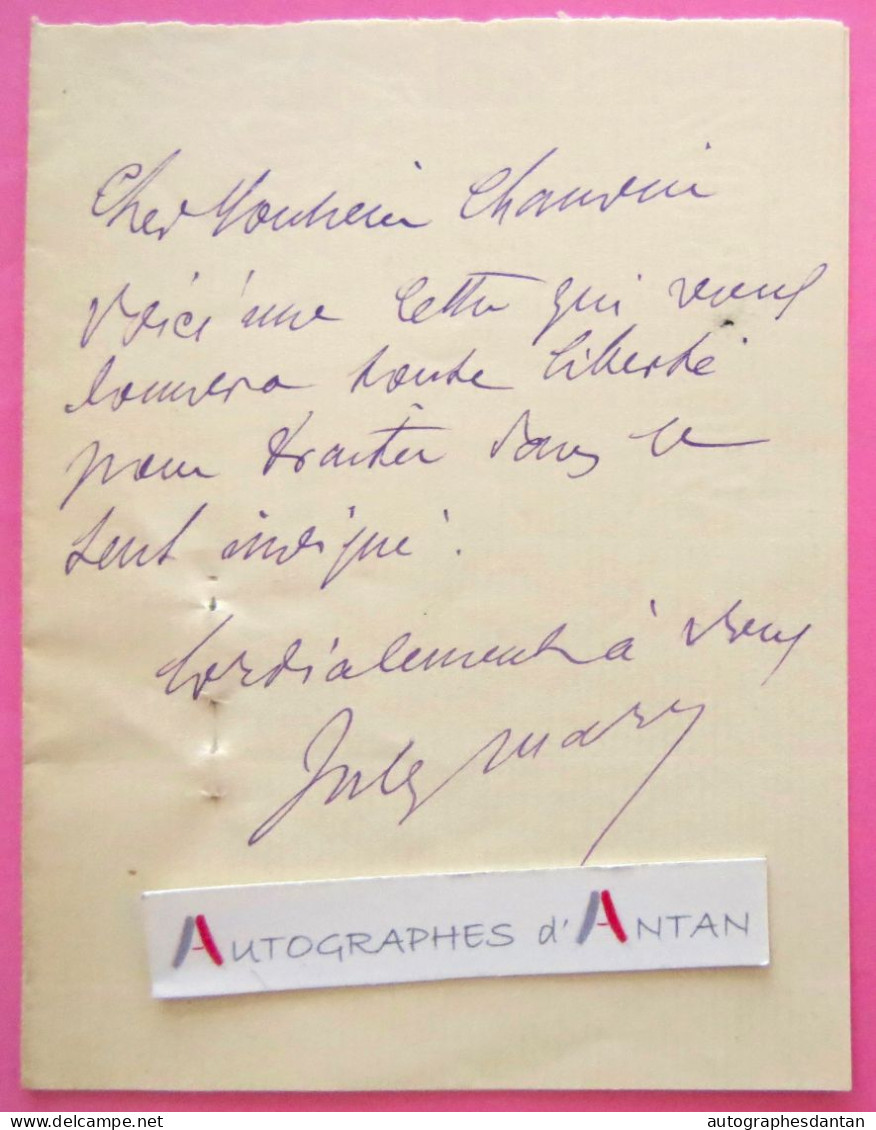 Cher Monsieur Chauvin
Voici une lettre qui vous
donnera toute liberté
pour traiter dans le
sens indiqué.
Cordialement à vous
Jules Mary
AUTOGRAPHES d'ANTAN
delcampe.net
autographesdantan